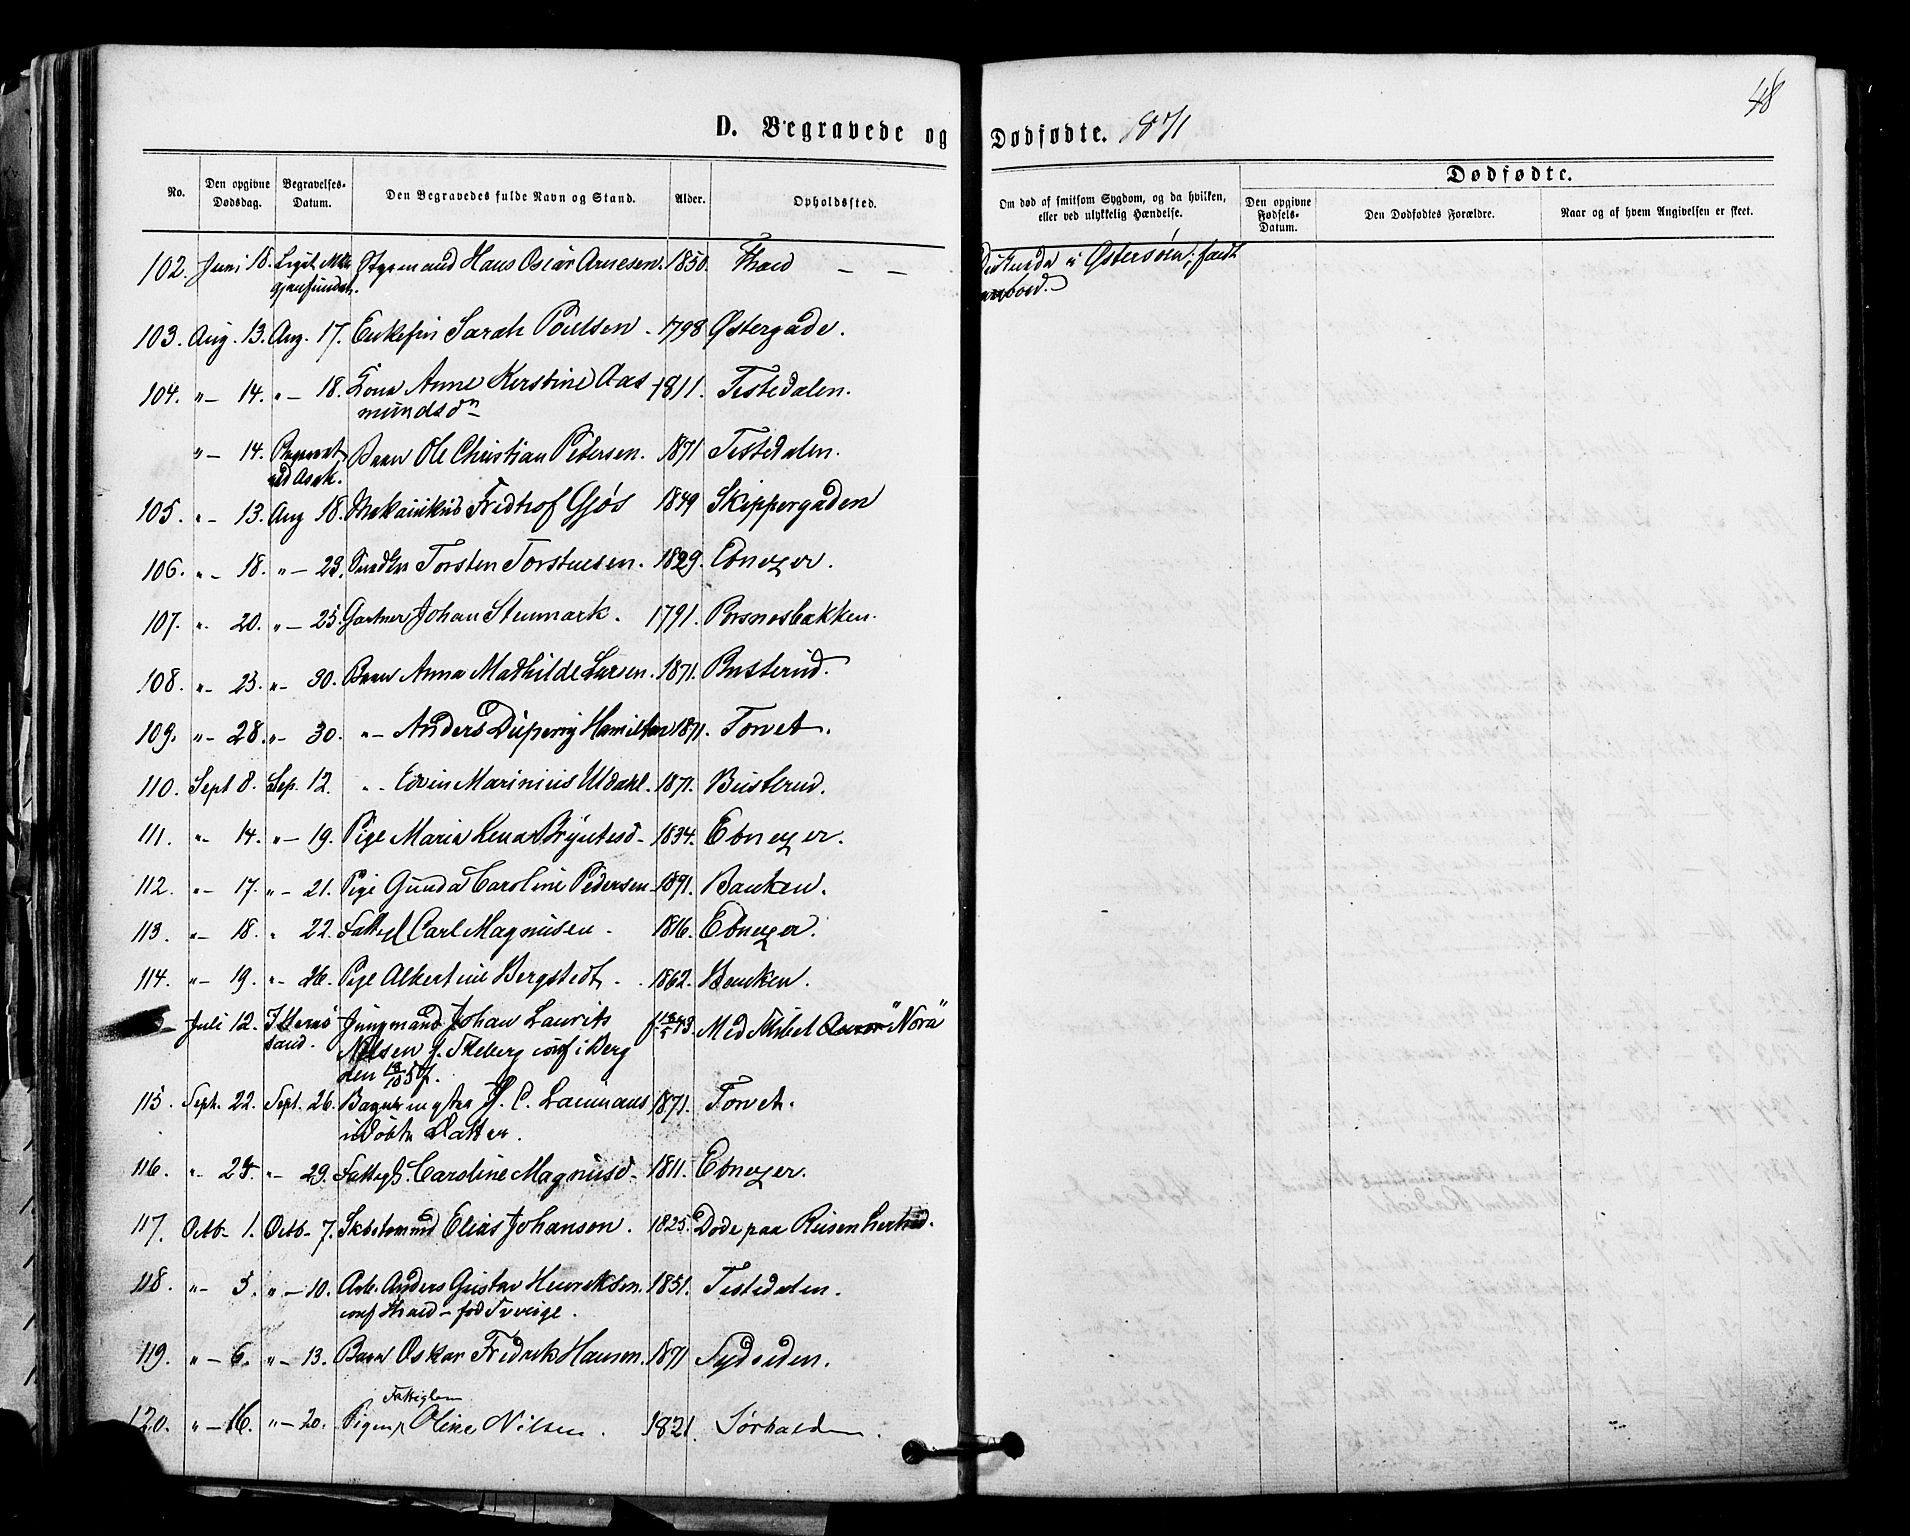 48
D. Begravede og Dødfødte. 1871
No.
Den opgivne Dødsdag.
Begravelses-Datum.
Den Begravedes fulde Navn og Stand.
Alder.
Opholdssted.
Om død af smitsom Sygdom, og da hvilken, eller ved ulykkelig Hændelse.
Dødfødte.
Den opgivne Fødsels-Datum.
Den Dødfødtes Forældre.
Naar og af hvem Angivelsen er skeet.
102. Juni 18. Liget ikke Styrmand Hans Oscar Arnesen. 1850. Thrd — — Østersøen; faldt
gjenfundet. overbord.
103. Aug. 13. Aug. 17. Enkefru Sarah Poulsen. 1798 Østergade.
104. " — 14. " — 18. Kone Anne Kerstine Aas 1811. Tistedalen.
mundsdn
" — 14. Barn Ole Christian Petersen. 1871 Tistedalen.
ved Asak.
105. " - 13. Aug 18. Fridthof Gjøs 1849 Skippergaden
106. " - 18. " — 23. Torsten Torstensen. 1829. Ebnezer.
107. " 20. " — 25. Gartner Johan Stenmark. 1791. Busnesbakken.
108. " - 25. " - 30. Barn Anna Mathilde Larsen. 1871. Busterud.
109. " — 28. " - 30. " - Anders Hamilton 1871. Torvet.
110. Sept 8. Sep. 12. " - Edvin Marinius Uldahl. 1871. Busterud.
111. " - 14. " — 19. Pige Maria Lena Bryntesd - 1834. Ebnezer.
112. " - 17. " — 21. Pige Gunda Caroline Pedersen 1871. Banken.
113. " - 18. " 22. Fattigl Carl Magnusen. 1816. Ebnezer.
114. " - 19. " - 26. Pige Albertine Bergstedt. 1862. Banken.
Juli 12. Jungmand Johan Laurits f. 43. Med Skibet "Nora"
sand. Nilsen f. conf i Berg
den
115. Sept. 22. Sept. 26. Bagermester H. C. Laumans 1871. Torvet.
udøbte Datter.
116. " - 25. " - 29. Fattigl. Caroline Magnusd - 1811. Ebnezer.
117. Octb - 1. Octb - 7. Elias Johansen. 1825. Døde paa Reisen hertid.
118. " - 5. " — 10. Arb. Anders Gustav Henriksen. 1851. Tistedalen.
conf Thrd - fød Sverige.
119. " - 6. " - 13. Barn Oskar Fredrik Hansen. 1871 Sydsiden.
Fattiglem
120. " — 16. " — 20. Pigen Oline Nilsen. 1821. Sørhalden.